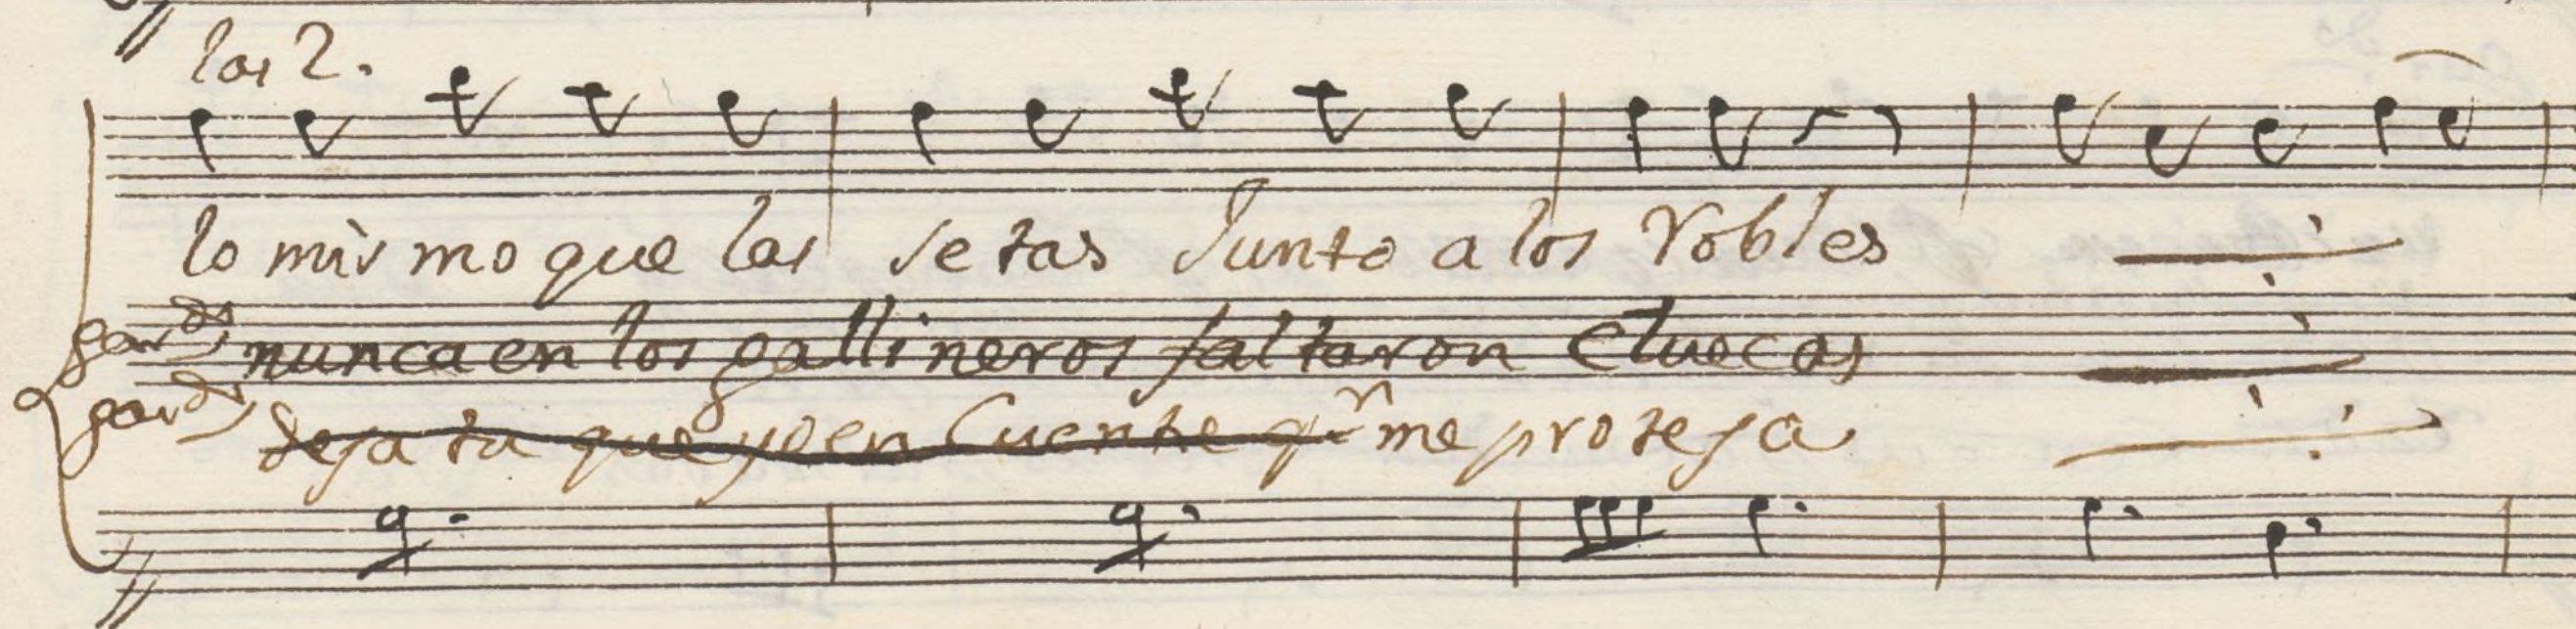 los 2.
lo mismo que las setas Junto a los Robles
gardo nunca en los gallineros faltaron cluecas
gardo deja tu que yo en Cuente qn me proteja